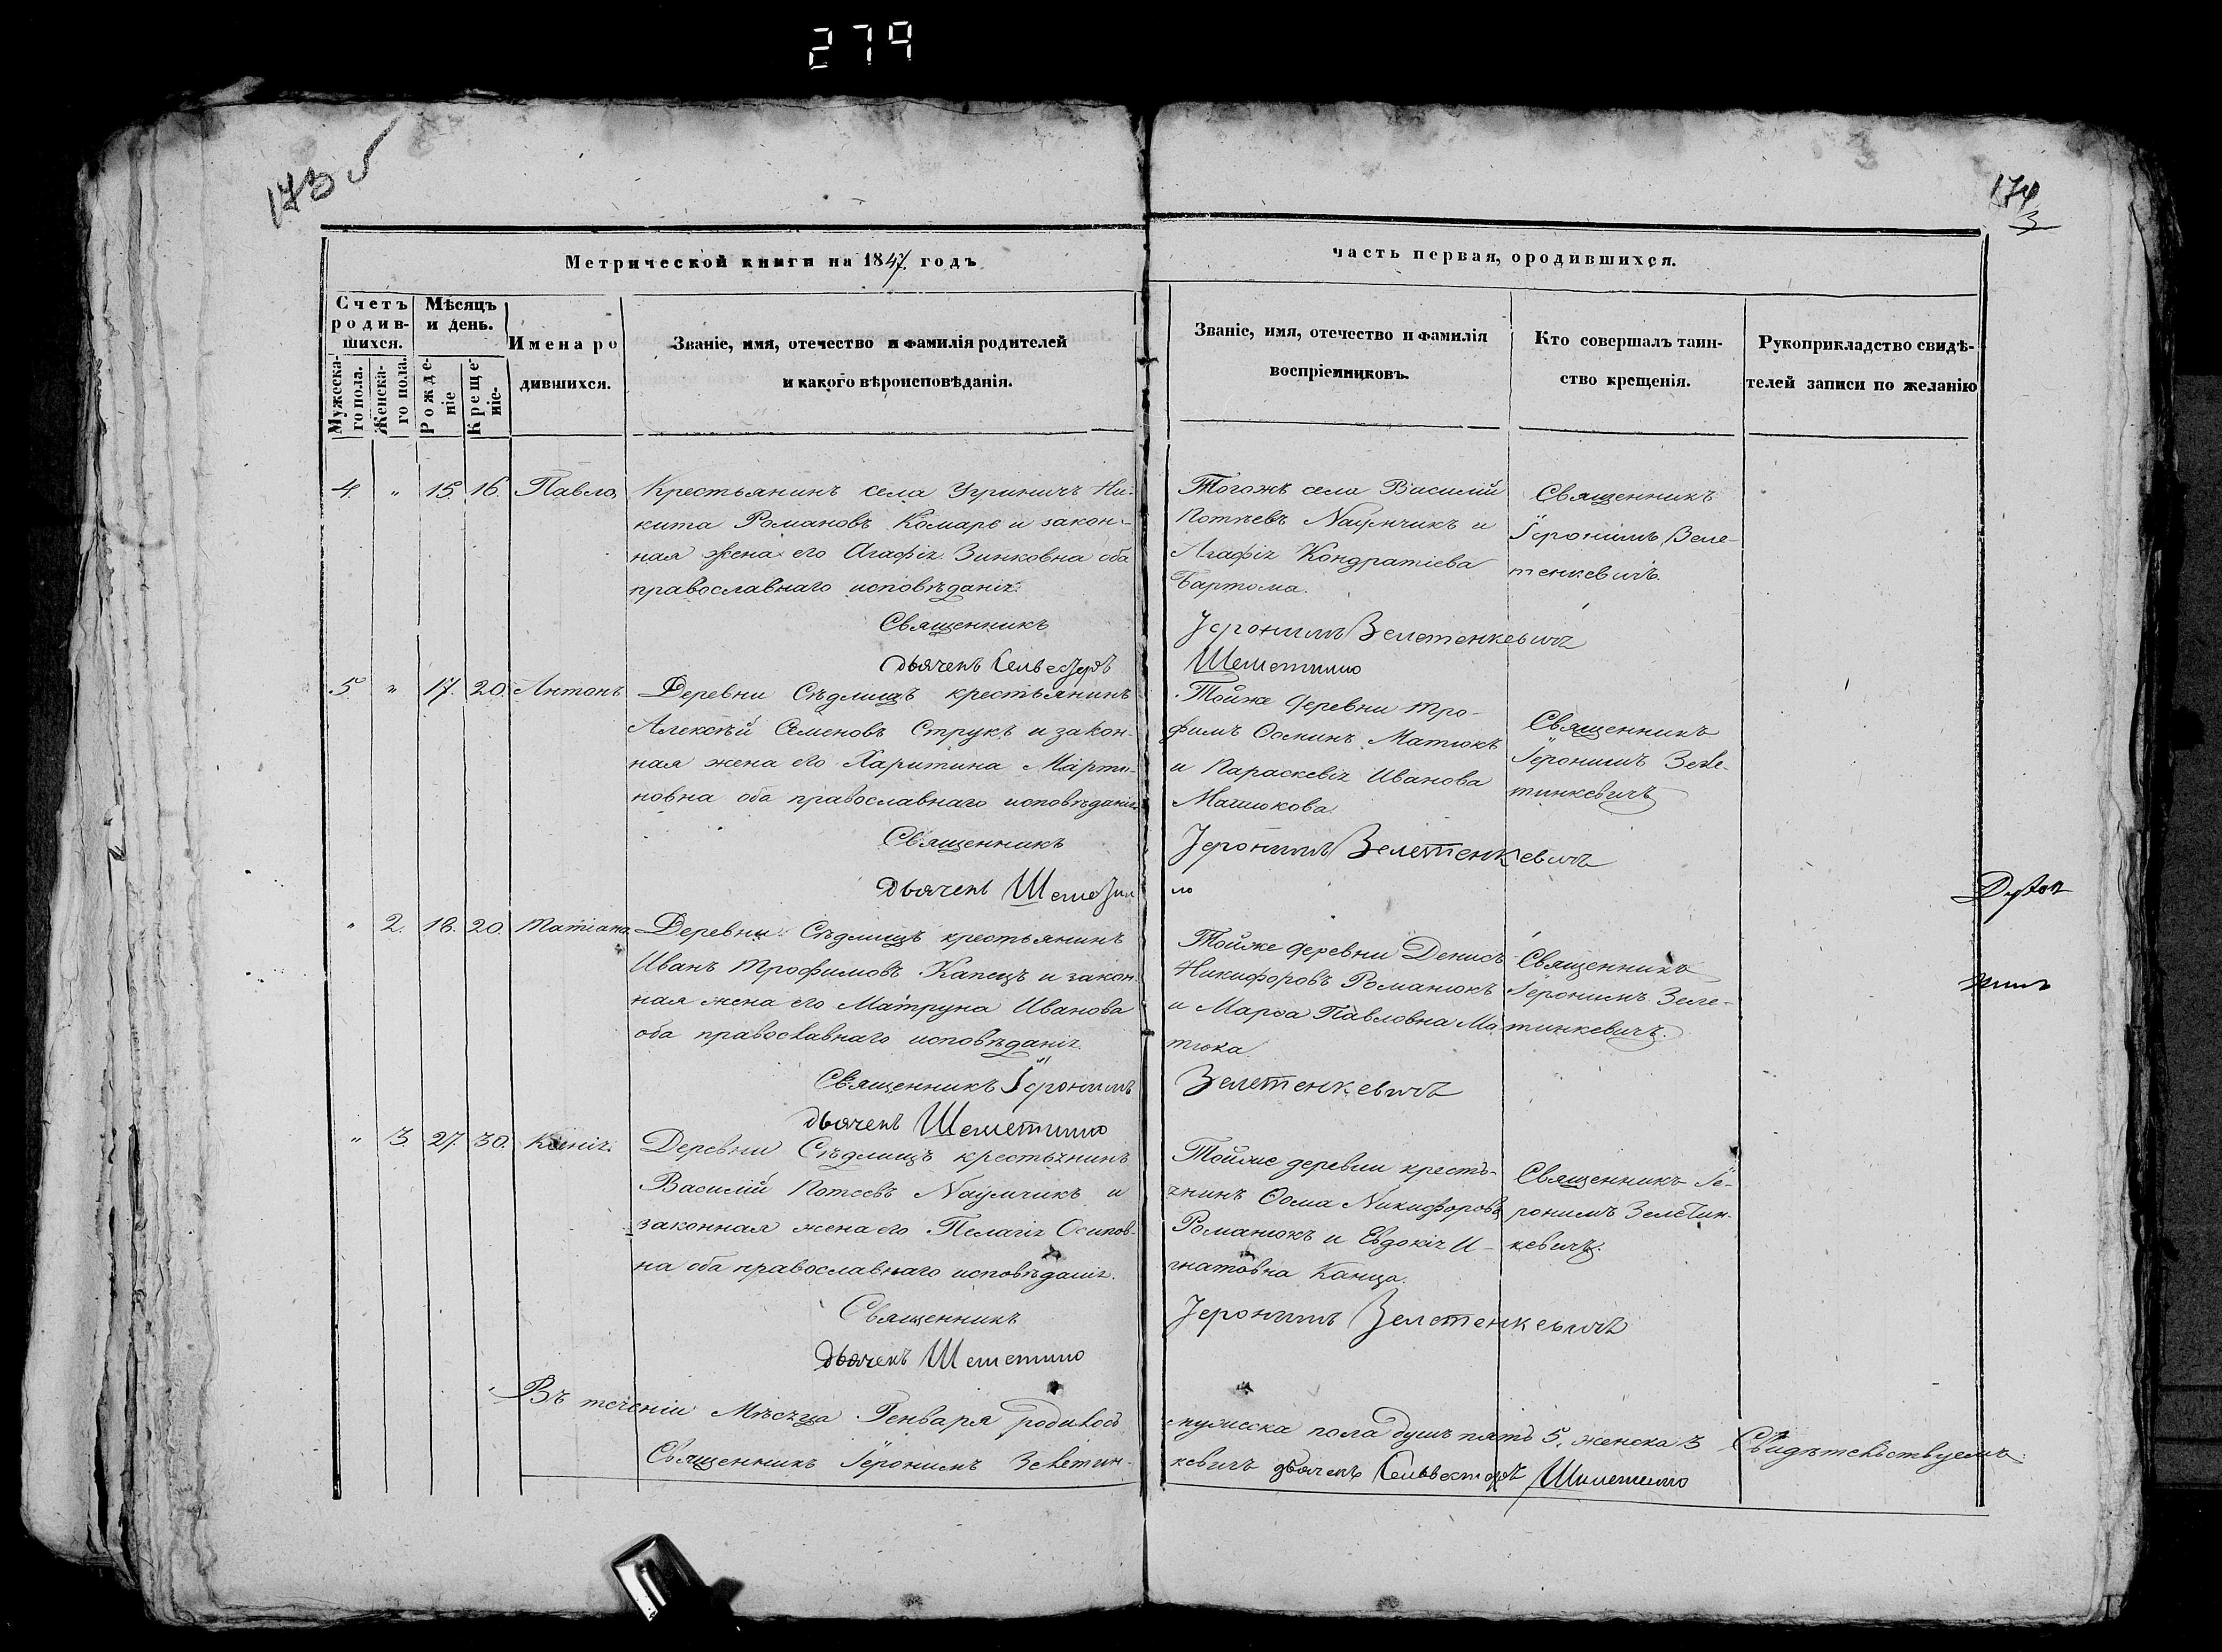 279
173 об
174
3
Метрической книги на 1847. годъ
часть первая, ородившихся.
Счетъ родив-шихся.
Мужеска-го пола.
Женска-го пола.
Мѣсяцъ и день.
Рожде-ніе
Креще-ніе.
Имена ро
дившихся.
Званіе, имя, отечество и фамилія родителей
и какого вѣроисповѣданія.
Званіе, имя, отечество и фамилія
воспріемниковъ.
Кто совершалъ таин-
ство крещенія.
Рукоприкладство свидѣ-
телей записи по желанію
4. " 15. 16. Павло,
Крестьянинъ села Угриничъ Ни-
кита Романовъ Комаръ и закон-
ная жена его Агафія Зинковна оба
православнаго исповѣданія.
Тогожъ села Василій
Потѣевъ Наумчикъ и
Агафія Кондратіева
Бартома.
Священникъ
Іеронимъ Зеле-
тенкевичъ.
Священникъ Іеронимъ Зелетенкевичъ
дьячекъ Сельвестръ Шеметилло
5 " 17. 20. Антонъ
Деревни Сѣдлищъ крестьянинъ
Алексѣй Семеновъ Струкъ и закон-
ная жена его Харитина Марти-
новна оба православнаго исповѣданія
Тойже деревни Тро-
фимъ Ѳоминъ Матюкъ
и Параскевія Иванова
Матюкова.
Священникъ
Іеронимъ Зеле-
тинкевичъ
Священникъ Іеронимъ Зелетенкевичъ
дьячекъ Шеметил
ло
" 2. 18. 20. Татіана.
Деревни Сѣдлищъ крестьянинъ
Иванъ Трофимовъ Капецъ и закон
ная жена его Матруна Иванова
оба православнаго исповѣданія.
Тойже деревни Денисъ
Никифоровъ Романюкъ
и Марѳа Павловна Ма
тюка.
Священникъ
Іеронимъ Зеле-
тинкевичъ.
Священникъ Іеронимъ Зелетенкевичъ
дьячекъ Шеметилло
" 3. 27. 30. Ксенія.
Деревни Сѣдлищъ крестьянинъ
Василій Потеевъ Наумчикъ и
законная жена его Пелагія Осипов-
на оба православнаго исповѣданія.
Тойже деревни кресть-
янинъ Ѳома Никифоровъ
Романюкъ и Евдокія И-
гнатовна Капца.
Священникъ Іе-
ронимъ Зелетин-
кевичъ.
Священникъ Іеронимъ Зелетенкевичъ
дьячекъ Шеметилло
Въ теченіи Мѣсяца Генваря родилось мужеска пола душъ пять 5. женска 3 Свидѣтельствуемъ
Священникъ Іеронимъ Зелетин-кевичъ дьячекъ Сельвестръ Шеметилло